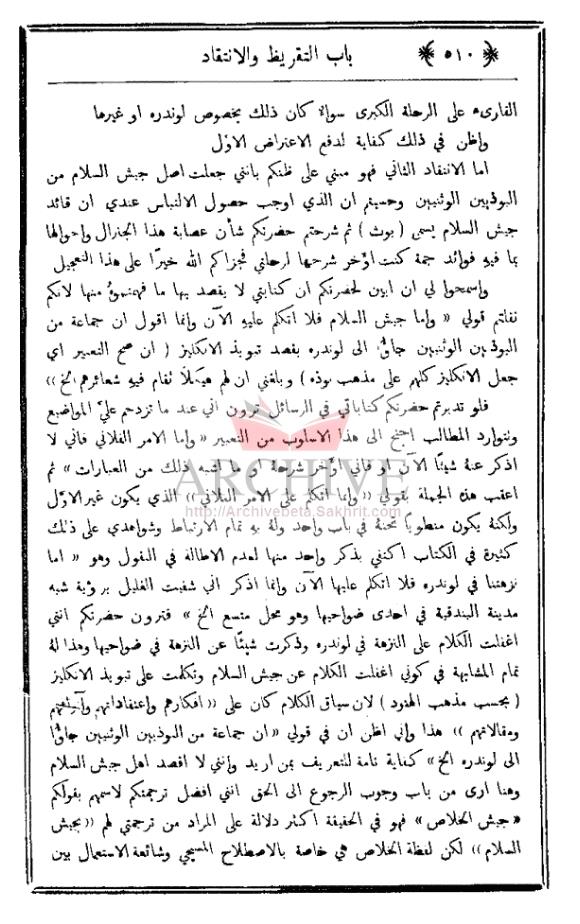 ﴿ ٥١٠ ﴾ باب التقريظ والانتقاد
القارىء على الرحلة الكبرى سواء كان ذلك بخصوص لوندره او غيرها
واظن في ذلك كفاية لدفع الاعتراض الاوّل
اما الانتقاد الثاني فهو مبني على ظنكم بانني جعلت اصل جيش السلام من
البوذيين الوثنيين وحسبتم ان الذي اوجب حصول الالتباس عندي ان قائد
جيش السلام يسمى ( بوث ) ثم شرحتم حضرتكم شأن عصابة هذا الجنرال واحوالها
بما فيهِ فوائد جمة كنت اؤخر شرحها لرحلتي فجزاكم الله خيرًا على هذا التعجيل
واسمحوا لي ان ابين لحضرتكم ان كتابتي لا يقصد بها ما فهمتموهُ منها لانكم
نقلتم قولي « واما جيش السلام فلا اتكلم عليهِ الآن وانما اقول ان جماعة من
البوذيين الوثنيين جاؤُا الى لوندره بقصد تبويذ الانكليز ( ان صح التعبير اي
جعل الانكليز كلهم على مذهب بوذه ) وبلغني ان لهم هيكلًا تقام فيهِ شعائرهم الخ »
فلو تدبرتم حضرتكم كتاباتي في الرسائل ترون اني عند ما تزدحم عليَّ المواضيع
وتتوارد المطالب اجنح الى هذا الاسلوب من التعبير « واما الامر الفلاني فاني لا
اذكر عنهُ شيئًا الآن او فاني اؤخر شرحهُ او ما اشبه ذلك من العبارات » ثم
اعقب هذه الجملة بقولي « وانما اتكلم على الامر الفلاني » الذي يكون غير الاوّل
ولكنهُ يكون منطويًا تحتهُ في باب واحد ولهُ بهِ تمام الارتباط وشواهدي على ذلك
كثيرة في الكتاب اكتفي بذكر واحد منها لعدم الاطالة في النقول وهو « اما
نزهتنا في لوندره فلا اتكلم عليها الآن وانما اذكر اني شفيت الغليل برؤية شبه
مدينة البندقية في احدى ضواحيها وهو محل متسع الخ » فترون حضرتكم انني
اغفلت الكلام على النزهة في لوندره وذكرت شيئًا عن النزهة في ضواحيها وهذا لهُ
تمام المشابهة في كوني اغفلت الكلام عن جيش السلام وتكلمت على تبويذ الانكليز
( بحسب مذهب الهنود ) لان سياق الكلام كان على « افكارهم واعتقاداتهم
ومقالاتهم » هذا واني اظن ان في قولي « ان جماعة من البوذيين الوثنيين جاؤُا
الى لوندره الخ » كفاية تامة للتعريف بمن اريد وانني لا اقصد اهل جيش السلام
وهنا ارى من باب وجوب الرجوع الى الحق انني افضل ترجمتكم لاسمهم بقولكم
« جيش الخلاص » فهو في الحقيقة اكثر دلالة على المراد من ترجمتي لهم « بجيش
السلام » لكن لفظة الخلاص هي خاصة بالاصطلاح المسيحي وشائعة الاستعمال بين
ARCHIVE
http://Archivebeta.Sakhrit.com